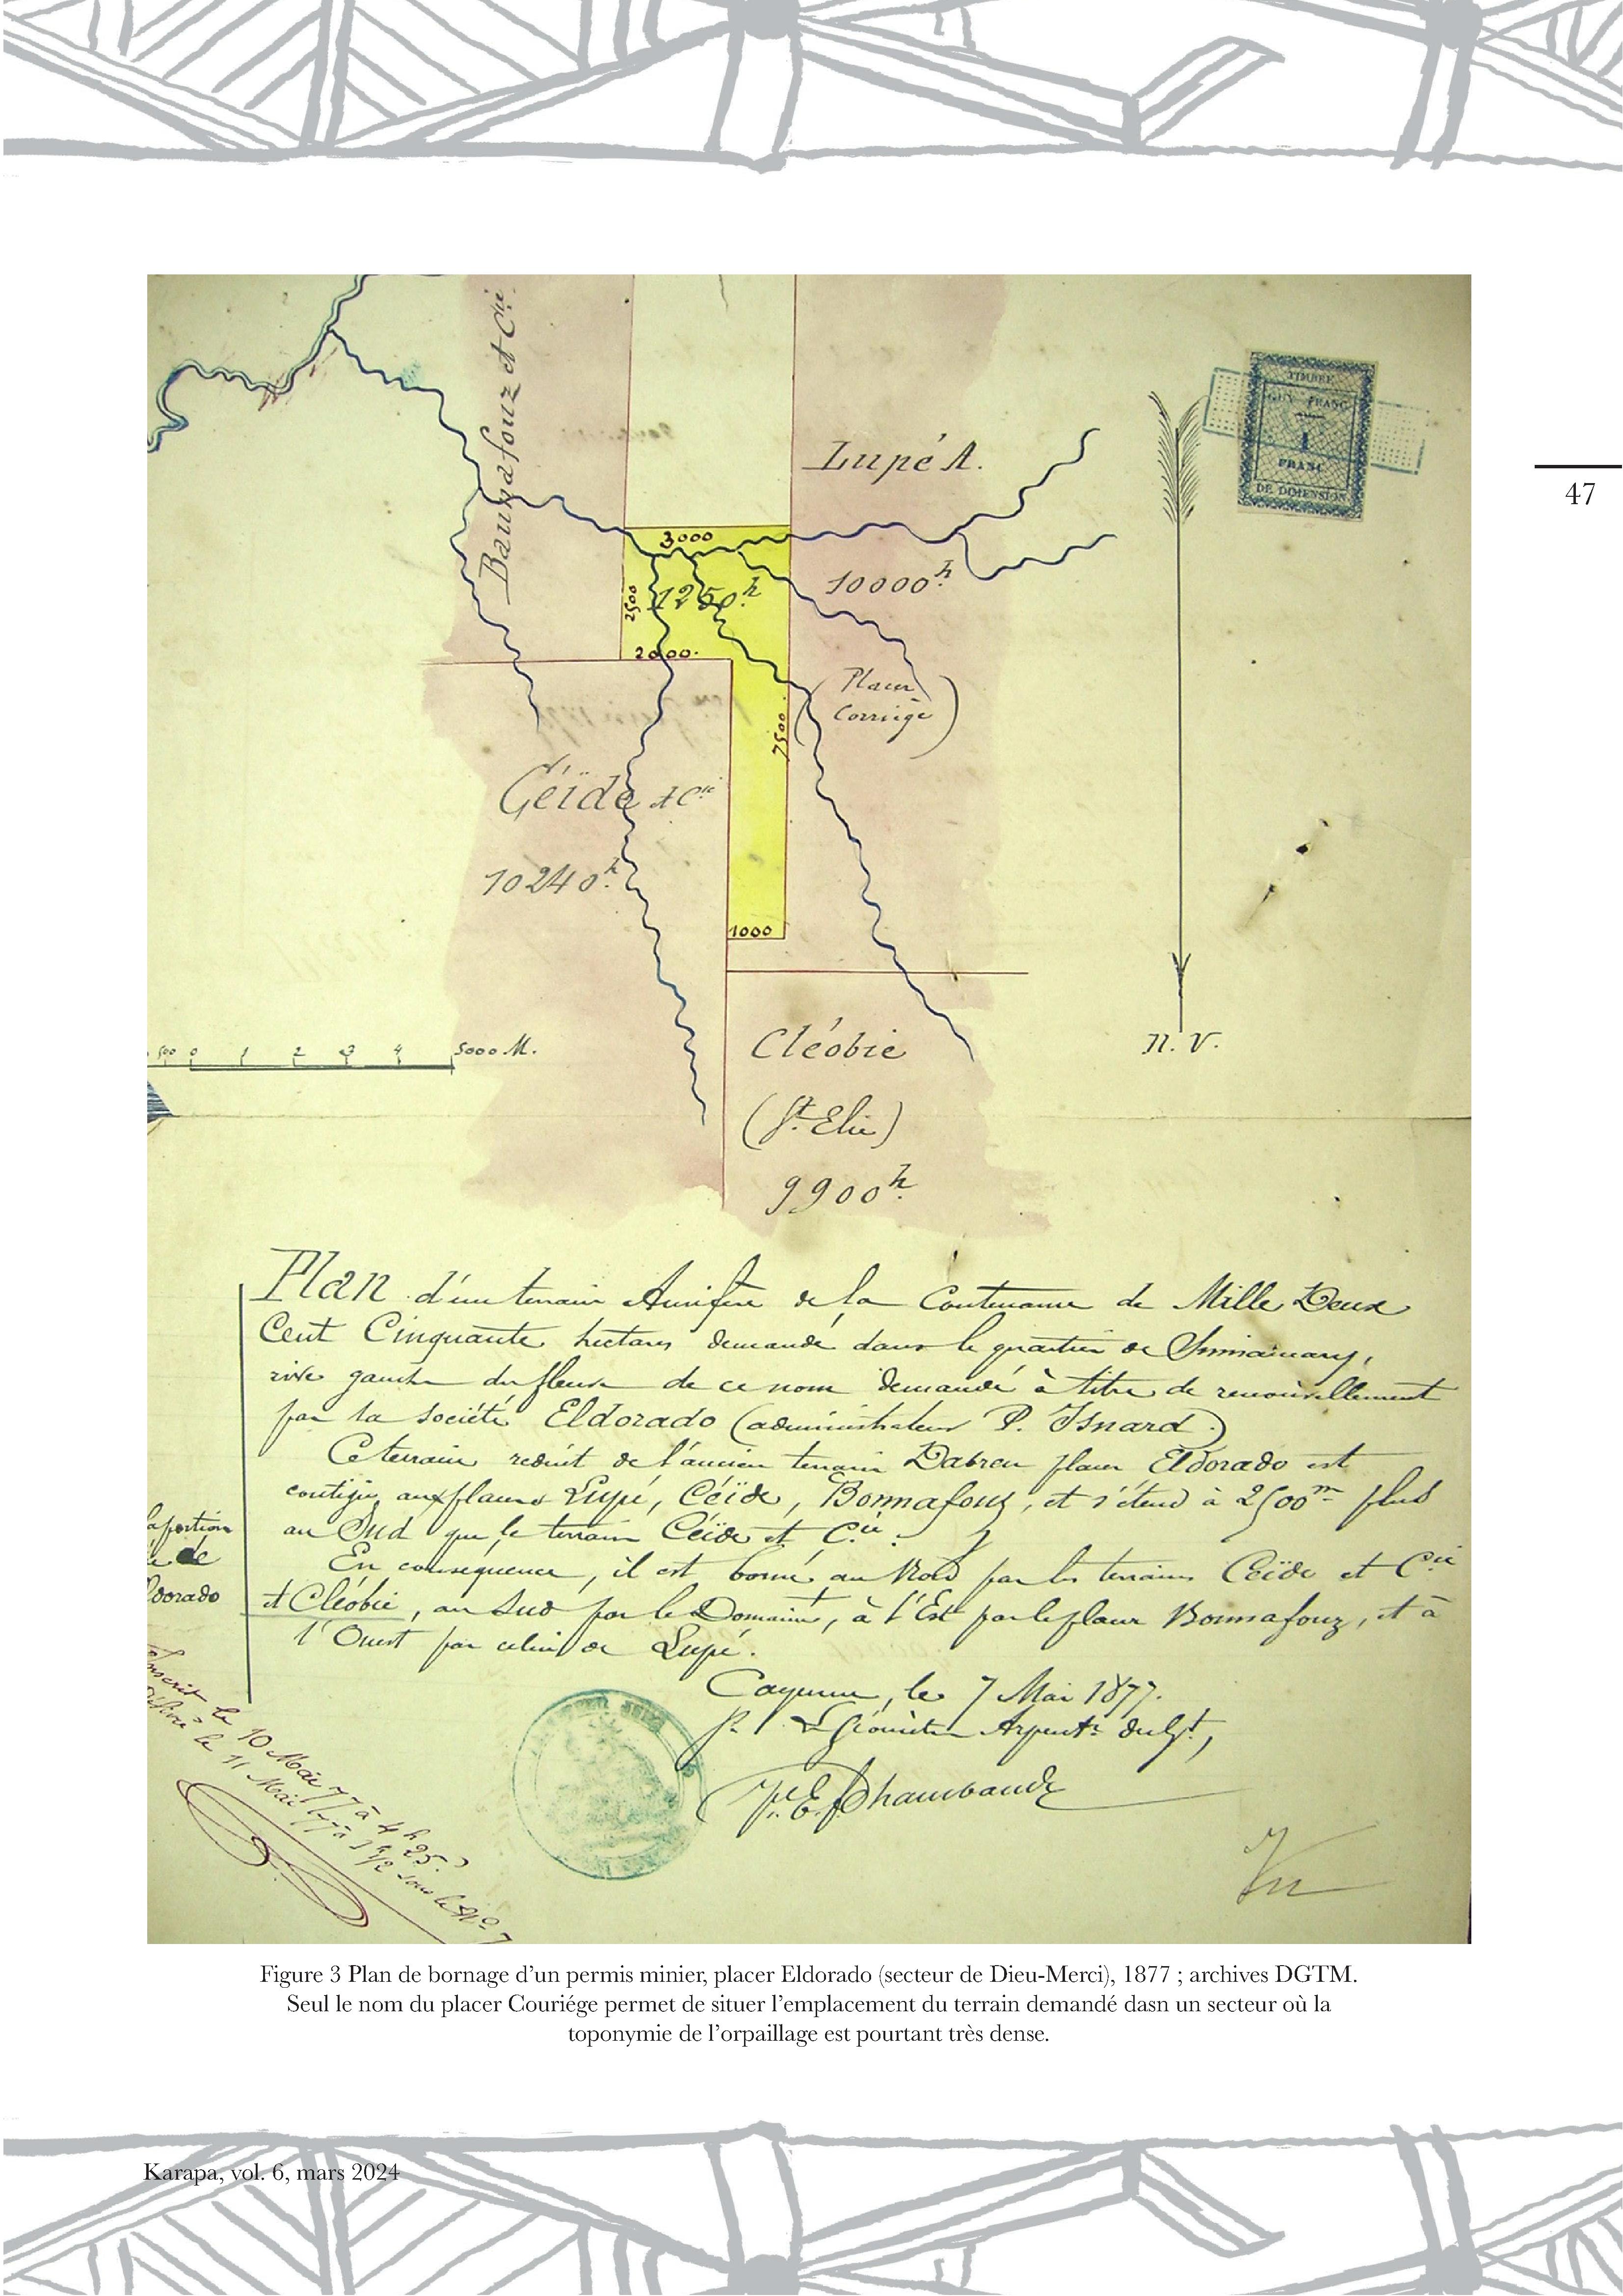 Baunafouz et Cie
TIMBRE
GUY. FRANC
1
FRANC
DE DIMENSION
Lupé A.
47
3000
10000h.
2500
1250h
2000.
(Placer
Corriège)
7500
Céïde et Cie
10240h.
1000
500 0 1 2 3 4 5000 M.
Cléobie
N. V.
(St. Elie)
9900h.
Plan d'un terrain Aurifère de la Contenance de Mille Deux
Cent Cinquante hectares demandé dans le quartier de Sinnamary,
rive gauche du fleuve de ce nom demandé à titre de renouvellement
par la société Eldorado (administrateur P. Isnard)
Ce terrain réduit de l'ancien terrain Dabreu placer Eldorado est
contigu aux placers Lupé, Céïde, Bonnafouz, et s'étend à 2500m plus
au Sud que le terrain Céïde et Cie.
En conséquence, il est borné au Nord par les terrains Céïde et Cie
et Cléobie, au Sud par le Domaine, à l'Est par le placer Bonnafouz, et à
l'Ouest par celui de Lupé.
la portion
de
ldorado
Cayenne, le 7 Mai 1877.
Pr Le Géomètre Arpentr du Gt,
Inscrit le 10 Mai 77 à 4h 25.
le 11 Mai 77 à 1h 1/2 sous le No 7
Figure 3 Plan de bornage d'un permis minier, placer Eldorado (secteur de Dieu-Merci), 1877 ; archives DGTM.
Seul le nom du placer Couriége permet de situer l'emplacement du terrain demandé dasn un secteur où la
toponymie de l'orpaillage est pourtant très dense.
Karapa, vol. 6, mars 2024